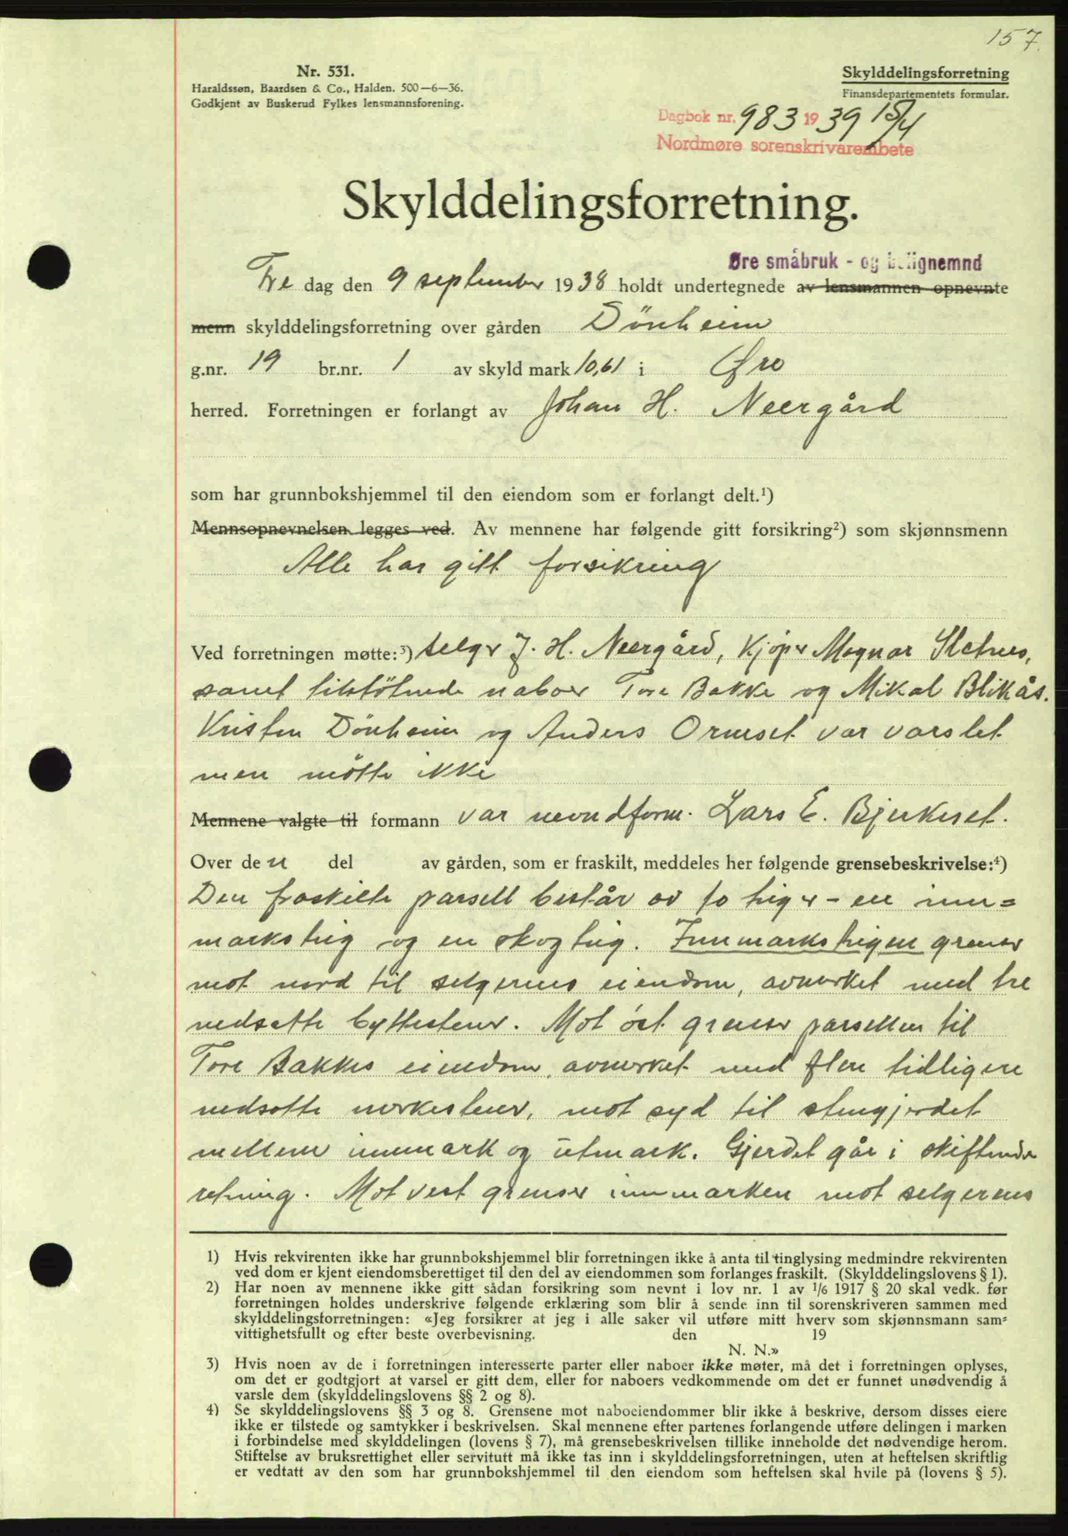 157.
Nr. 531.
Haraldssøn, Baardsen & Co., Halden. 500—6—36.
Godkjent av Buskerud Fylkes lensmannsforening.
Skylddelingsforretning
Finansdepartementets formular.
Dagbok nr. 983 1939 15/4
Nordmøre sorenskrivarembete
Skylddelingsforretning.
Øre småbruk - og bolignemnd
Fre dag den 9 september 1938 holdt undertegnede av lensmannen opnevnte
menn skylddelingsforretning over gården Dönheim
g.nr. 19 br.nr. 1 av skyld mark 10,61 i Øre
herred. Forretningen er forlangt av Johan H. Neergård
som har grunnbokshjemmel til den eiendom som er forlangt delt.¹)
Mennsopnevnelsen legges ved. Av mennene har følgende gitt forsikring²) som skjønnsmenn
Alle har gitt forsikring
Ved forretningen møtte:³) selger J. H. Neergård, Kjöper Magnar
samt tilstötende naboer Tore Bakke og Mikal Blikås.
Kristen Dönheim og Anders Ormset var varslet
men mötte ikke
Mennene valgte til formann var nevndform. Lars E. Bjerkeset.
Over den del av gården, som er fraskilt, meddeles her følgende grensebeskrivelse:⁴)
Den fraskilte parsell består av to teiger - en inn=
marksteig og en skogteig. Innmarksteigen grenser
mot nord til selgerens eiendom, avmerket med tre
nedsatte byttestener. Mot öst grenser parsellen til
Tore Bakkes eiendom, avmerket med flere tidligere
nedsatte merkestener, mot syd til stengjerdet
mellem innmark og utmark. Gjerdet går i skiftende
retning. Mot vest grenser innmarken mot selgerens
1) Hvis rekvirenten ikke har grunnbokshjemmel blir forretningen ikke å anta til tinglysing medmindre rekvirenten
ved dom er kjent eiendomsberettiget til den del av eiendommen som forlanges fraskilt. (Skylddelingslovens § 1).
2) Har noen av mennene ikke gitt sådan forsikring som nevnt i lov nr. 1 av 1/6 1917 § 20 skal vedk. før
forretningen holdes underskrive følgende erklæring som blir å sende inn til sorenskriveren sammen med
skylddelingsforretningen: «Jeg forsikrer at jeg i alle saker vil utføre mitt hverv som skjønnsmann sam=
vittighetsfullt og efter beste overbevisning. den 19
N. N.»
3) Hvis noen av de i forretningen interesserte parter eller naboer ikke møter, må det i forretningen oplyses,
om det er godtgjort at varsel er gitt dem, eller for naboers vedkommende om det er funnet unødvendig å
varsle dem (skylddelingslovens §§ 2 og 8).
4) Se skylddelingslovens §§ 3 og 8. Grensene mot naboeiendommer blir ikke å beskrive, dersom disses eiere
ikke er tilstede og samtykker i beskrivelsen. Skal mennene efter partenes forlangende utføre delingen i marken
i forbindelse med skylddelingen (lovens § 7), må grensebeskrivelsen tillike inneholde det nødvendige herom.
Stiftelse av bruksrettighet eller servitutt må ikke tas inn i skylddelingsforretningen, uten at heftelsen skriftlig
er vedtatt av den som har grunnbokshjemmel til den eiendom som heftelsen skal hvile på (lovens § 5).